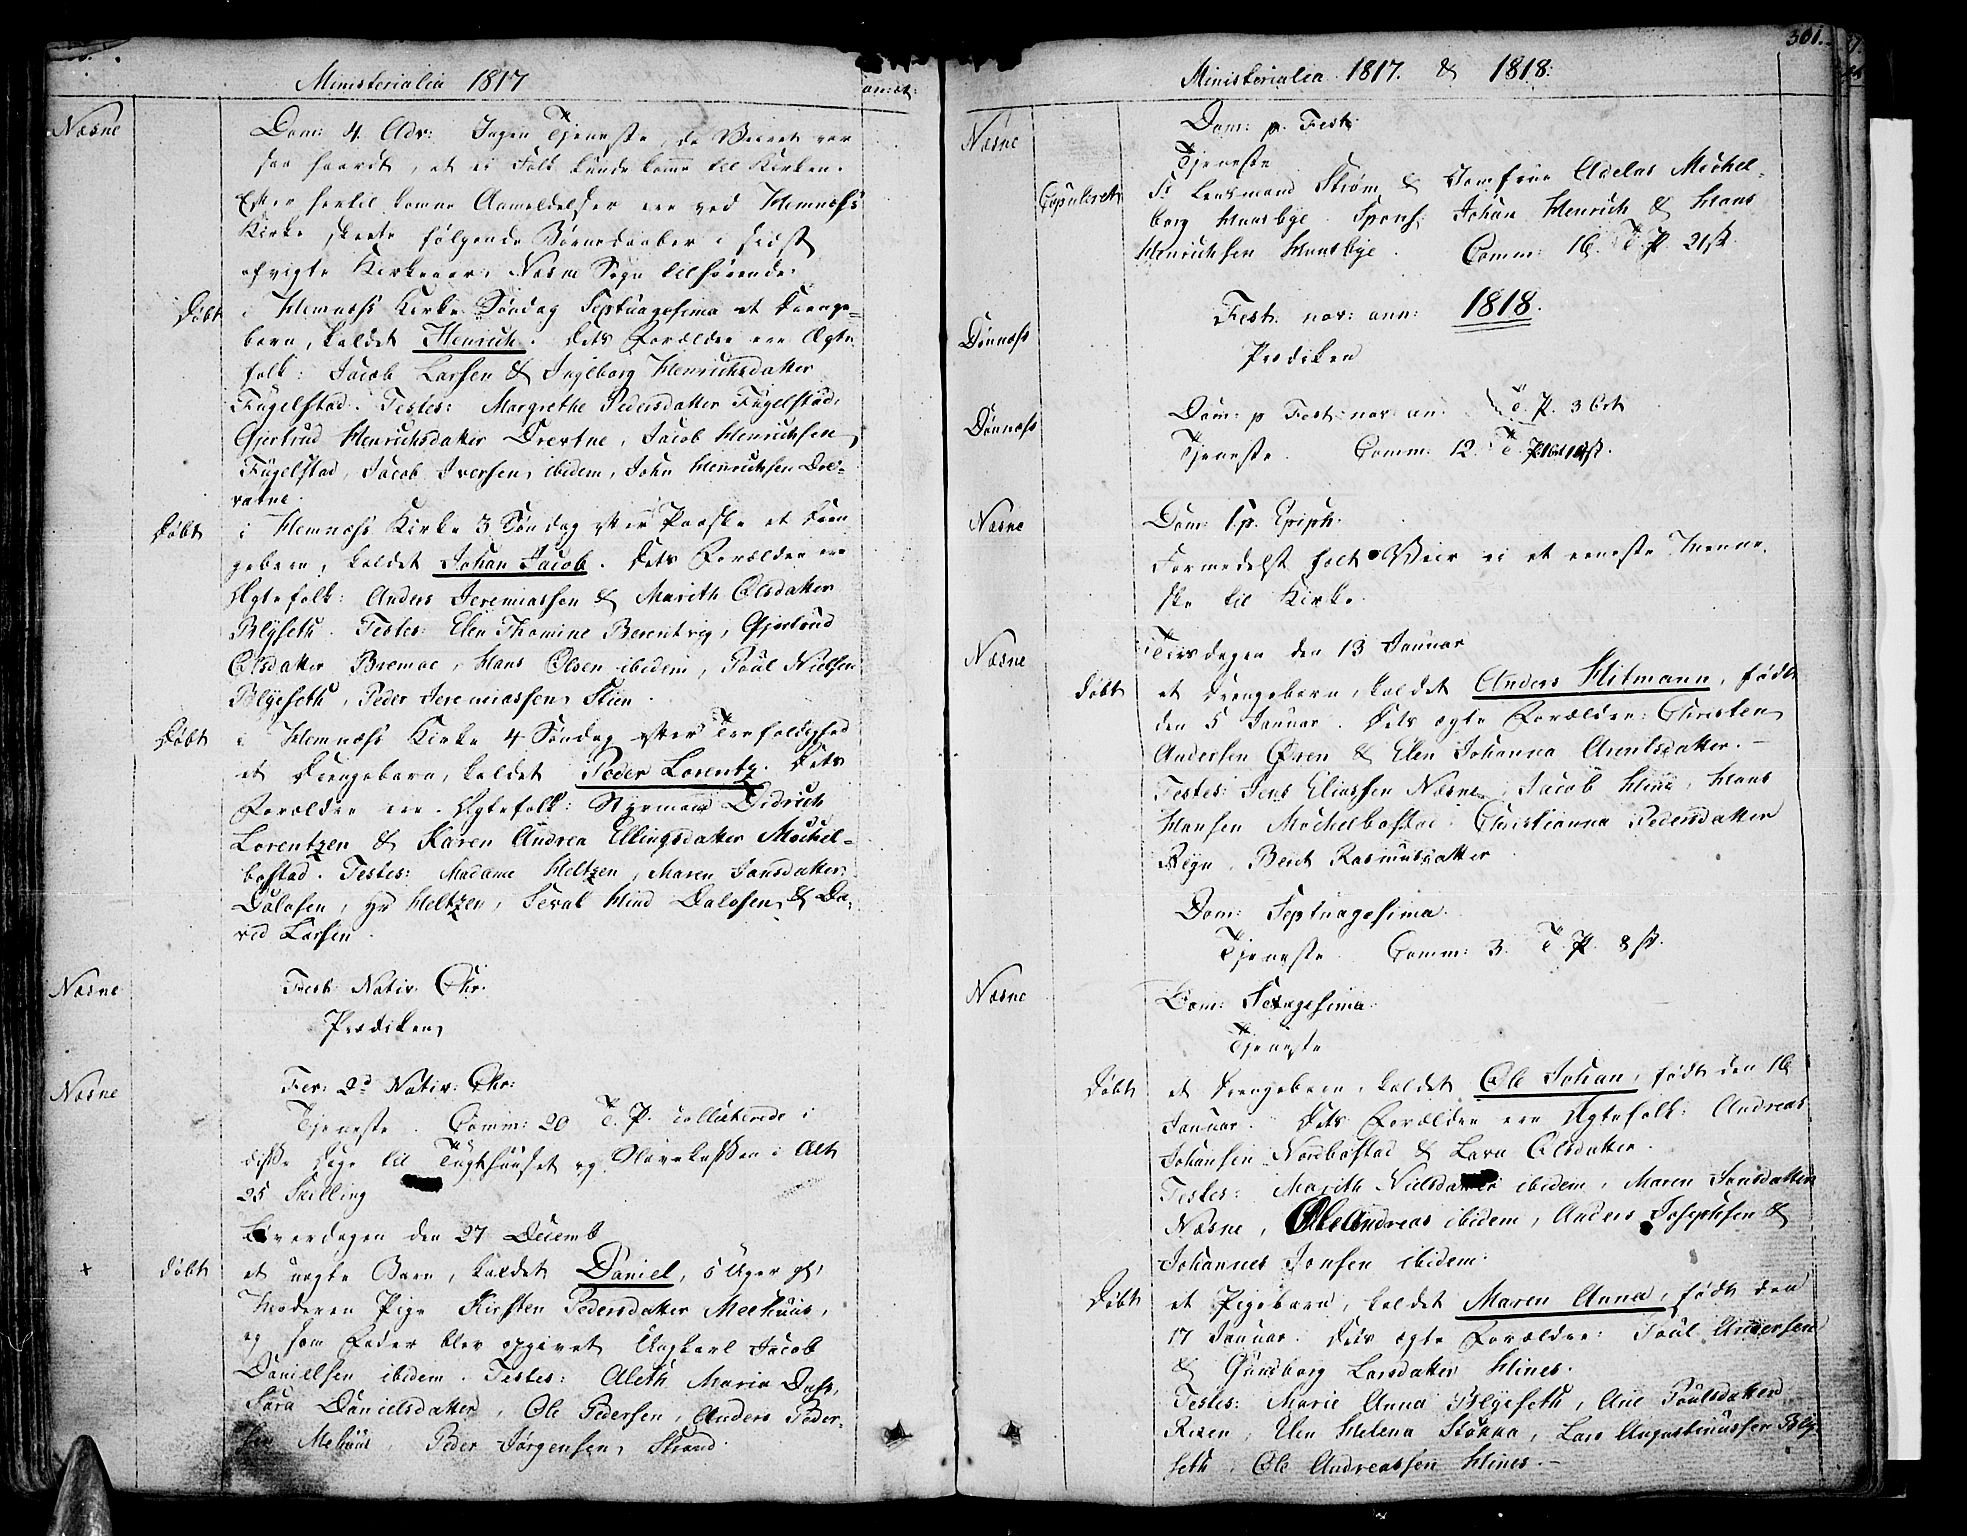 Ministerialia 1817
Næsne
Dom: 4 Adv: Ingen Tjeneste, da Veiret var
saa haardt, at ei Folk kunde komme til Kirken.
Efter hertil komne Anmeldelser ere ved Hemnæss
Kirke skeete følgende Børnedaaber i sidst
afvigte Kirkeaar, Næsne Sogn tilhørende:
Døbt i Hemnæss Kirke Søndag Septuagesima et Drenge-
barn, kaldet Henrich. Dets Forældre ere Ægte
folk: Jacob Larsen & Ingeborg Henrichsdatter
Fugelstad. Testes: Margrethe Pedersdatter Fugelstad,
Gjertrud Henrichsdatter Drevtne, Jacob Henrichsen
Fugelstad, Jacob Iversen ibidem, John Henrichsen Dre-
vatne.
Døbt i Hemnæss Kirke 3 Søndag efter Paaske et Dren
gebarn, kaldet Johan Jacob. Dets Forældre ere
Ægtefolk: Anders Jeremiassen & Marith Olsdatter
Blyseth. Testes: Elen Thomine Berentvig, Gjertrud
Olsdatter Bremoe, Hans Olsen ibidem, Poul Nielsen
Blyeseth, Peder Jeremiassen Stien.
Døbt i Hemnæss Kirke 4 Søndag efter Trefoldighed
et Drengebarn, kaldet Peder Lorentz. Dets
Forældre ere Ægtefolk: Styrmand Didrich
Lorentzen & Karen Andrea Ellingsdatter Møchel-
bostad. Testes: Madame Heltzen, Maren Jonsdatter
Dalosen, Hr Heltzen, Sevat Hind Dalosen & Da-
vid Larsen.
Næsne
Fest: Nativ. Chr.
Prædiken
Næsne
Fer: 2d Nativ: Chr:
Tjeneste. Comm: 20 T. P. collecterede i
disse Dage til Tugthuuset og Slavekassen i Alt
25 Skilling
Løverdagen den 27 Decemb
+ Døbt et uægte Barn, kaldet Daniel, 5 Uger gl,
Moderen Pige Kirsten Pedersdatter Meehuus,
og som Fader blev opgivet Ungkarl Jacob
Daniellsen ibidem. Testes: Aleth Maria Dass,
Sara Danielsdatter, Ole Pedersen, Anders Peder-
sen Mehuus, Peder Jørgensen Strand.
301.
Ministerialia 1817. & 1818:
Næsne
Dom: p. Fest:
Tjeneste
Copuleret Sr Lensmand Strøm & Jomfrue Adelus Møchel-
borg Huusbye. Spons: Johan Henrich & Hans
Henrichsen Huusbye. Comm: 16. T. P. 21 sk.
Fest: nov: ann: 1818.
Dønnæss
Prædiken
Dønnæss
Dom: p Fest: nov: an: T. P. 3 Ort
Tjeneste. Comm: 12. T.
Næsne
Dom: 1 p. Epiph.
Formedelst fælt Veir ei et eneste Menne-
ske til Kirke.
Næsne
Tirsdagen den 13 Januar
Døbt et Drengebarn, kaldet Anders Hitmann, født
den 5 Januar. Dets ægte Forældre: Christen
Andersen Øren & Elen Johanna Arntsdatter. —
Testes: Jens Eliassen Næsne, Jacob Hine, Hans
Hansen Møchelbostad. Christianna Pedersdatter
Pige, Berit Rasmusdatter.
Dom: Septuagesima.
Tjeneste. Comm: 3. T. P. 8 sk.
Næsne
Dom: Sexagesima.
Tjeneste
Døbt et Drengebarn, kaldet Ole Johan, født den 16
Januar. Dets Forældre ere Ægtefolk: Andreas
Johansen Nordbostad & Lava Olsdatter.
Testes: Marith Nielsdatter ibidem, Maren Jonsdatter
Næsne, Ole Andreas ibidem, Anders Josephsen &
Johannes Jonsen ibidem.
Døbt et Pigebarn, kaldet Maren Anna, født den
17 Januar. Dets ægte Forældre: Poul Andersen
& Gundborg Larsdatter Hines.
Testes: Marie Anna Blyeseth, Ane Poulsdatter
Risen, Elen Helena Stokka, Lars Augustinussen Bly-
seth, Ole Andreassen Hines. —